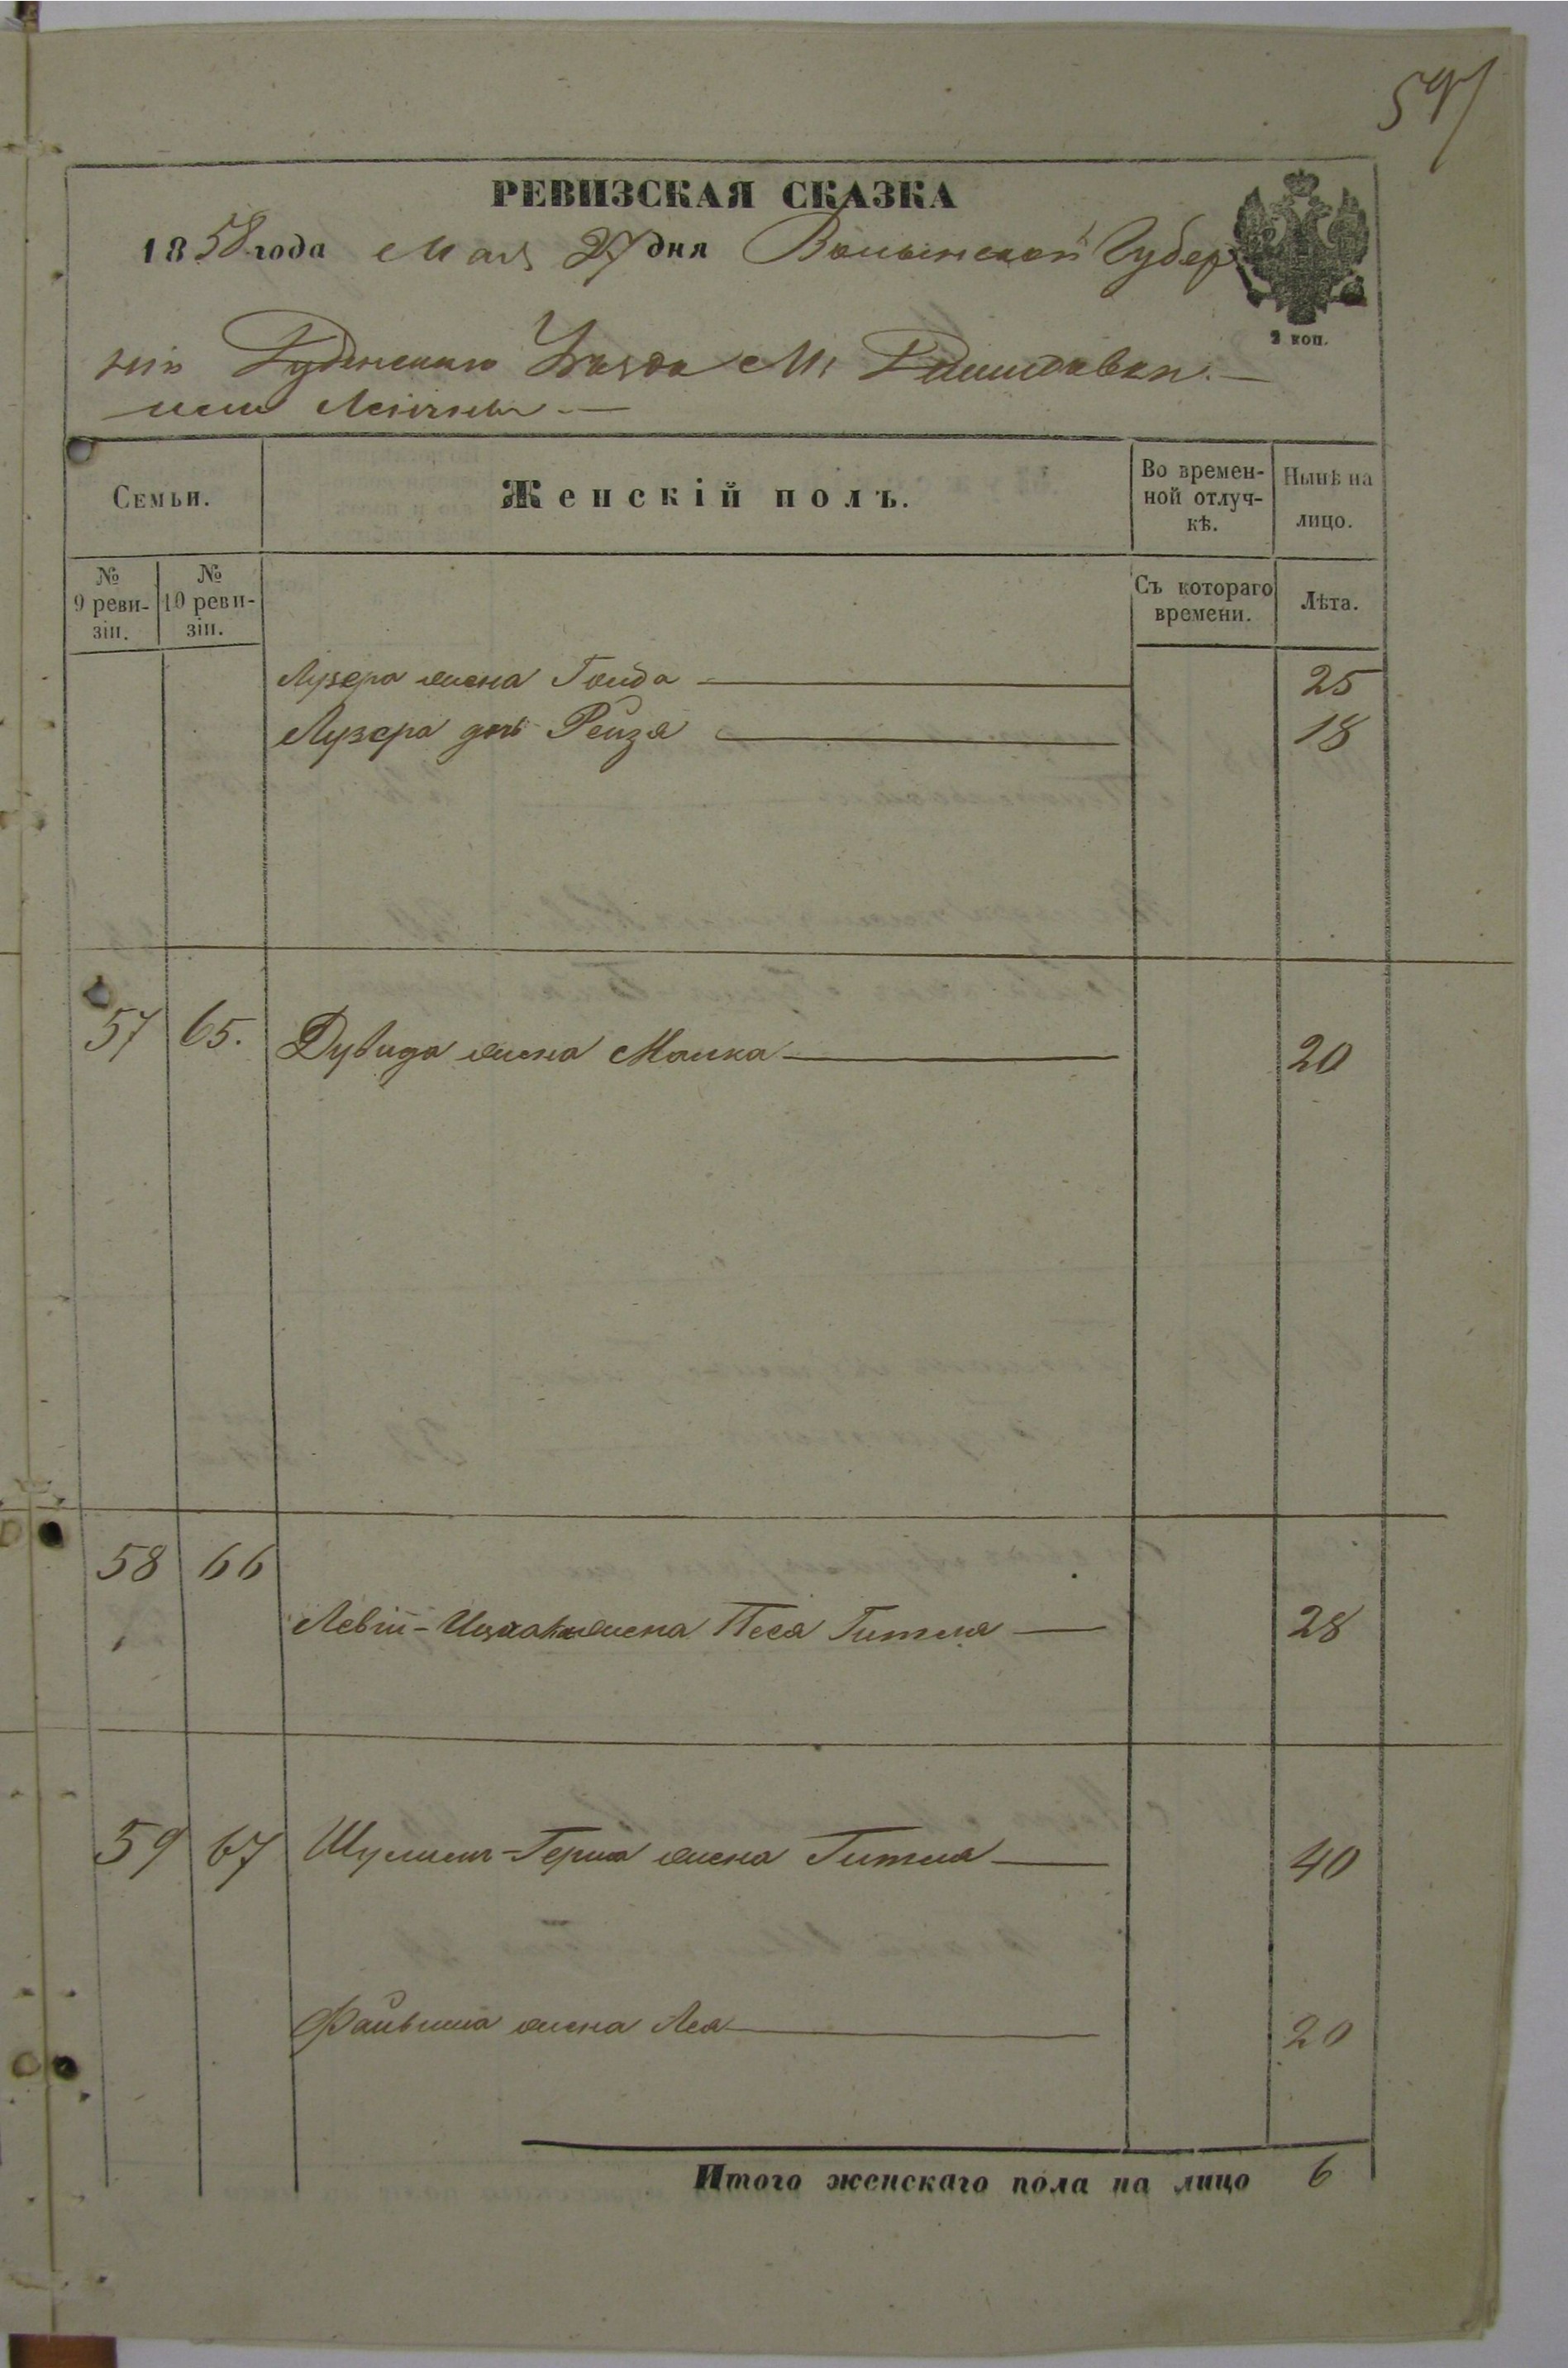 597
РЕВИЗСКАЯ СКАЗКА
1858 года Мая 27 дня Волынской Губер
2 коп.
ніи Дубенскаго Уѣзда М.
Семьи.
Женскій полъ.
Во времен-
ной отлуч-
кѣ.
Нынѣ на
лицо.
№
9 реви-
зіи.
№
10 реви-
зіи.
Съ котораго
времени.
Лѣта.
Лузера жена Голда 25
Лузера дочь Рейзя 18
57 65. Дувида жена Малка 20
58 66
Левій-Ицхака жена Песя Гитля 28
59 67 Шулим-Герша жена Гитля 40
Файвиша жена Лея 20
Итого женскаго пола на лицо 6